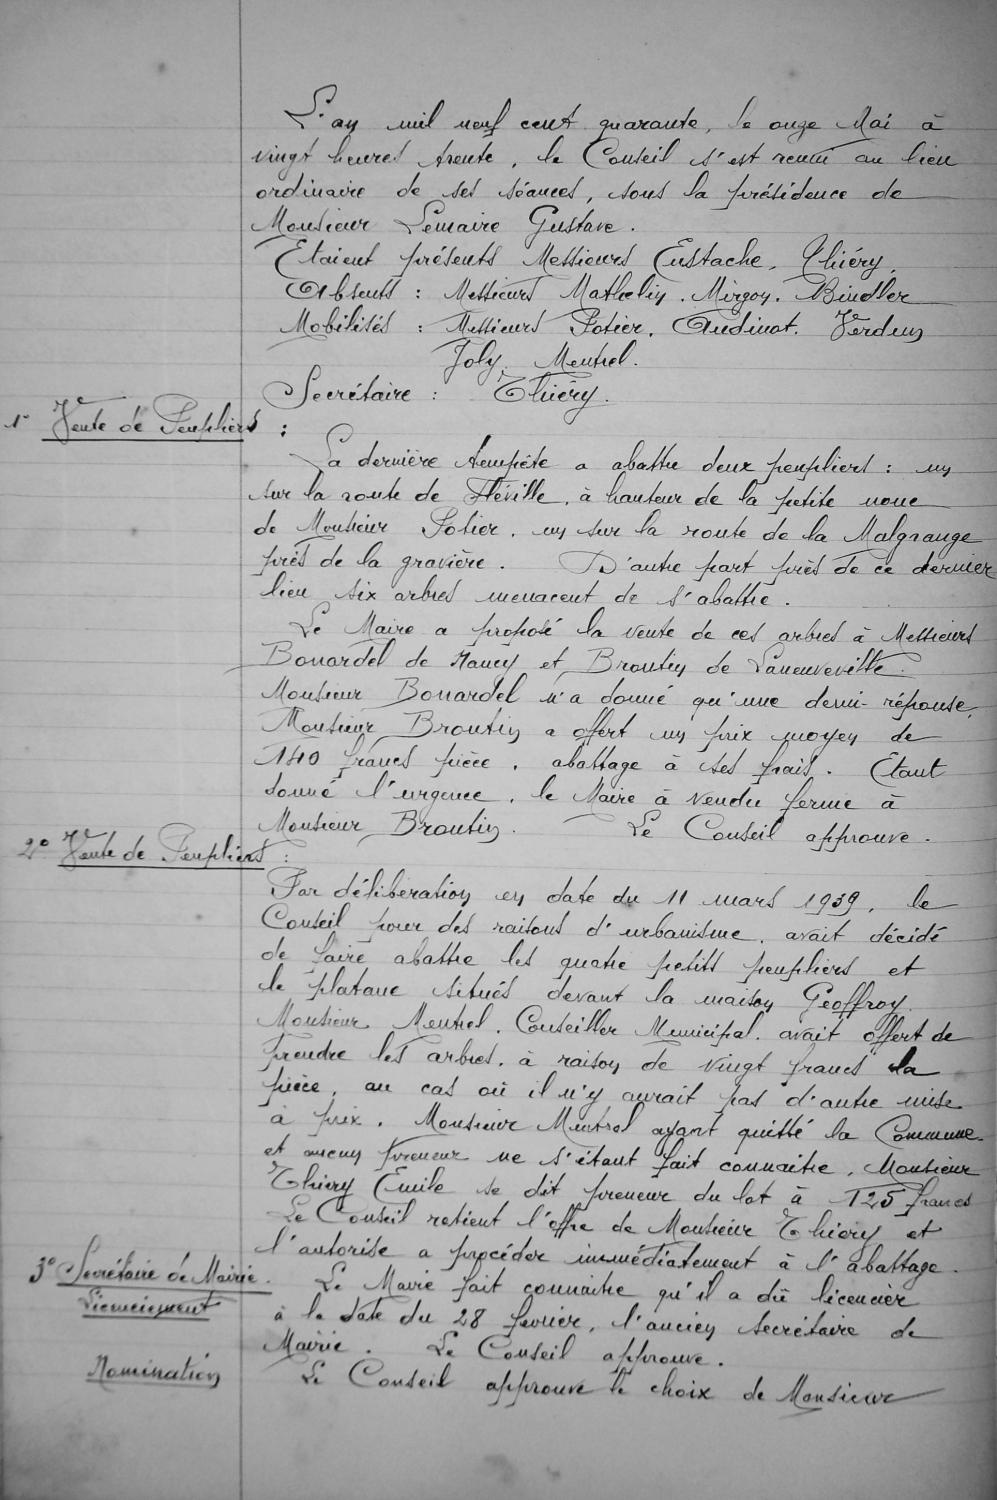 L'an mil neuf cent quarante, le onze Mai à
vingt heures trente, le Conseil s'est reuni au lieu
ordinaire de ses séances, sous la présidence de
Monsieur Lemaire Gustave.
Etaient présents Messieurs Eustache, Thiéry,
Absents : Messieurs Mathelin. Mirgon. Bindler
Mobilisés : Messieurs Potier, Audinot. Verdun
Joly, Mentrel.
Secrétaire : Thiéry.
1° Vente de Peupliers :
La dernière tempête a abattu deux peupliers : un
sur la route de Fléville, à hauteur de la petite noue
de Monsieur Potier, un sur la route de la Malgrange
près de la gravière. D'autre part près de ce dernier
lieu six arbres menacent de s'abattre.
Le Maire a proposé la vente de ces arbres à Messieurs
Bonardel de Nancy et Broutin de Laneuveville.
Monsieur Bonardel n'a donné qu'une demi-réponse,
Monsieur Broutin a offert un prix moyen de
140 francs pièce, abattage à ses frais. Etant
donné l'urgence, le Maire à vendu ferme à
Monsieur Broutin. Le Conseil approuve.
2° Vente de Peupliers :
Par délibération en date du 11 mars 1939, le
Conseil pour des raisons d'urbanisme, avait décidé
de faire abattre les quatre petits peupliers et
le platane situés devant la maison Geoffroy.
Monsieur Mentrel, Conseiller Municipal, avait offert de
prendre les arbres, à raison de vingt francs la
pièce, au cas où il n'y aurait pas d'autre mise
à prix. Monsieur Mentrel ayant quitté la Commune
et aucun preneur ne s'étant fait connaître, Monsieur
Thiéry Emile se dit preneur du lot à 125 francs
Le Conseil retient l'offre de Monsieur Thiéry et
l'autorise a procéder immédiatement à l'abattage.
3° Secrétaire de Mairie. Le Mairie fait connaître qu'il a dû licencier
Licenciement
à la date du 28 février, l'ancien secrétaire de
Mairie. Le Conseil approuve.
Nomination Le Conseil approuve le choix de Monsieur